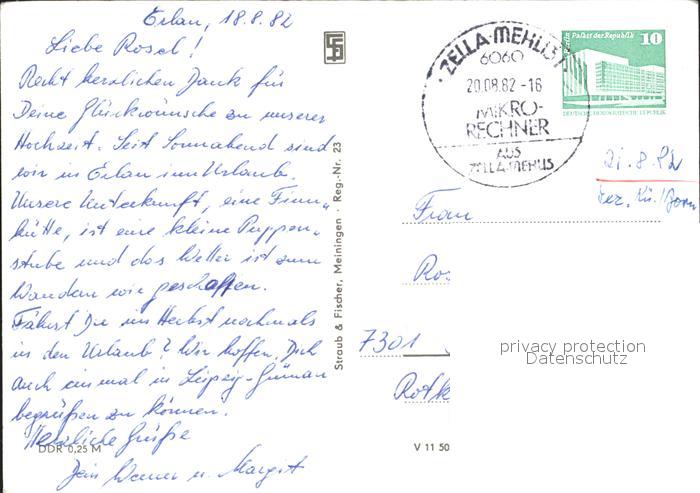 Erlau, 18.8.82
Liebe Rosel!
Recht herzlichen Dank für
Deine Glückwünsche zu unserer
Hochzeit. Seit Sonnabend sind
wir in Erlau im Urlaub.
Unsere Unterkunft, eine Finn-
hütte, ist eine kleine Puppen-
stube und das Wetter ist zum
Wandern wie geschaffen.
Fährst Du im Herbst nochmals
in den Urlaub? Wir hoffen, Dich
auch einmal in Leipzig-Grünau
begrüßen zu können.
Herzliche Grüße
Dein Werner u. Margit
DDR 0,25 M
Straub & Fischer, Meiningen · Reg.-Nr. 23
V 11 50
ZELLA-MEHLIS 1
6060
20.08.82 -16
MIKRO-
RECHNER
AUS
ZELLA-MEHLIS
Palast der Republik
10
DEUTSCHE DEMOKRATISCHE REPUBLIK
21.8.82
Frau
Ros
7301
Rotk
privacy protection
Datenschutz